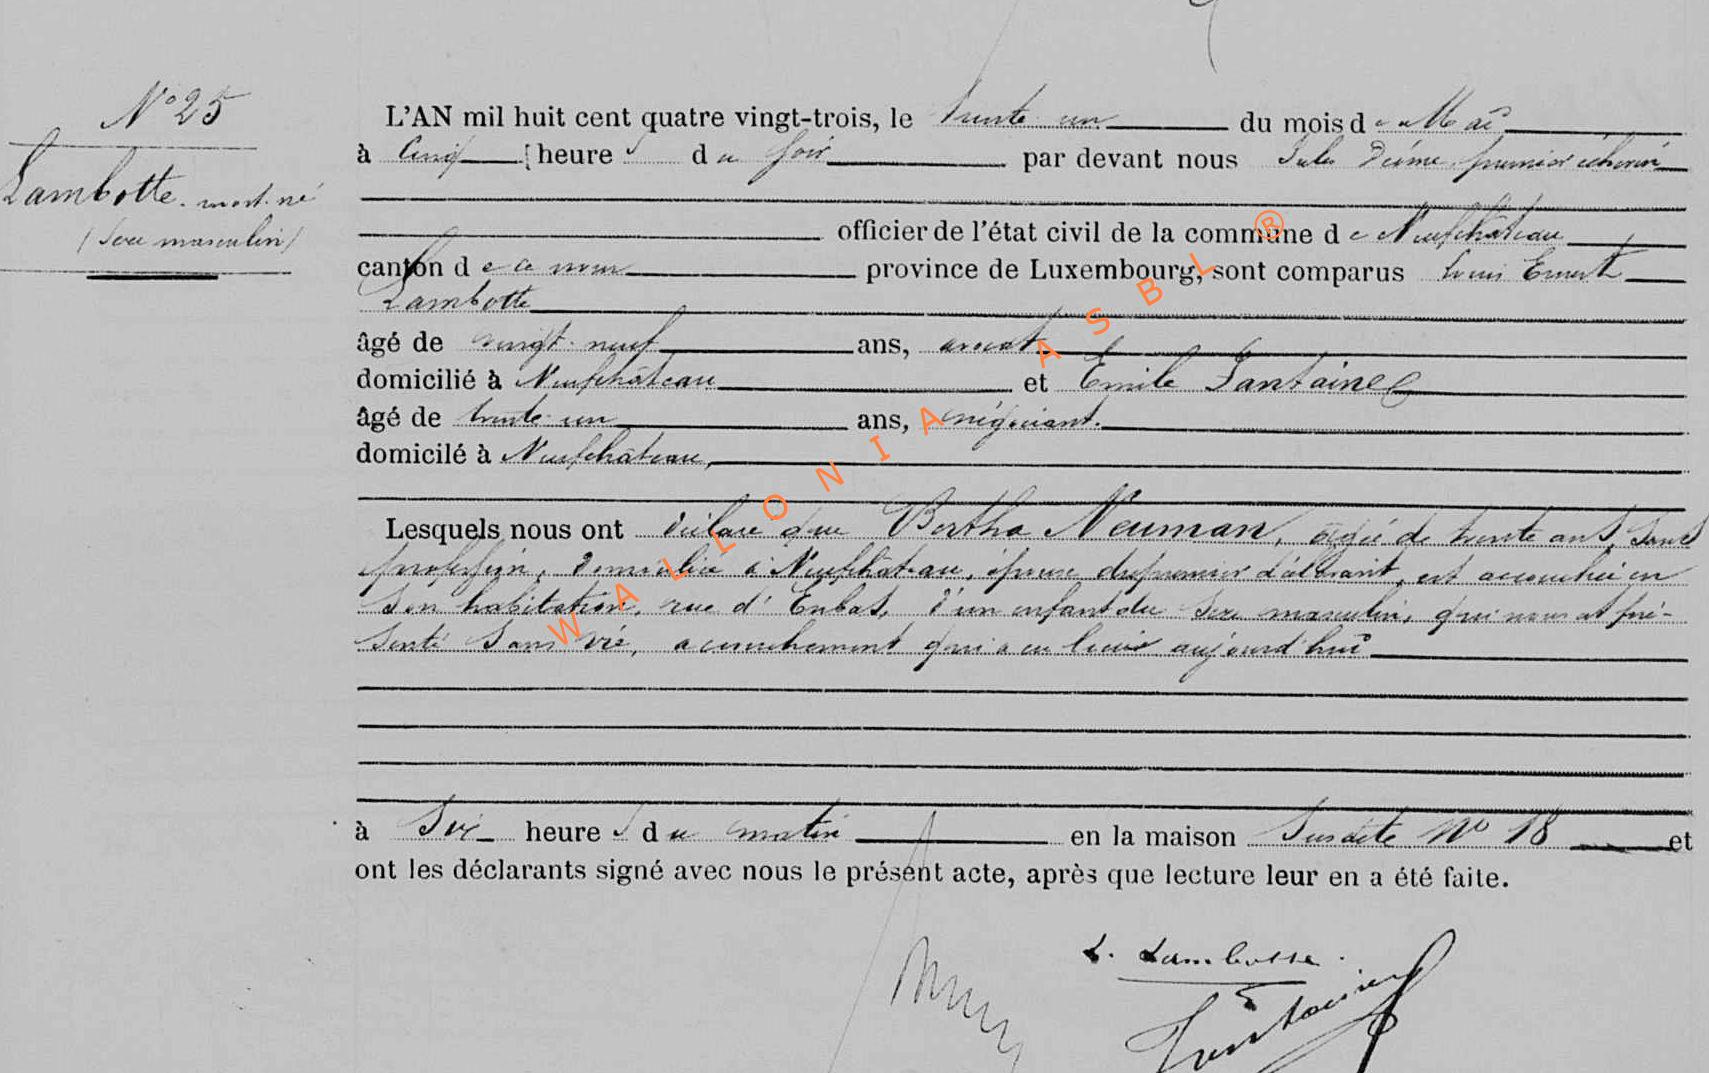 N° 25
Lambotte. mort-né
(sexe masculin)
L'AN mil huit cent quatre vingt-trois, le trente un du mois de Mai
à cinq heures du soir par devant nous Jules premier échevin
officier de l'état civil de la commune de Neufchâteau
canton de ce nom province de Luxembourg, sont comparus Louis Ernest
Lambotte
âgé de vingt-neuf ans, avocat
domicilié à Neufchâteau et Emile Fontaine
âgé de trente-un ans, négociant.
domicilé à Neufchâteau,
Lesquels nous ont déclaré que Bertha Neuman, âgée de trente ans, sans
profession, domiciliée à Neufchâteau, épouse du premier déclarant, est accouchée en
son habitation, rue d'Enbas, d'un enfant du sexe masculin, qui nous est pré-
senté sans vie, accouchement qui a eu lieu aujourd'hui
à six heures du matin en la maison susdite N° 18 et
ont les déclarants signé avec nous le présent acte, après que lecture leur en a été faite.
L. Lambotte.
Fontaine
WALLONIA ASBL ®